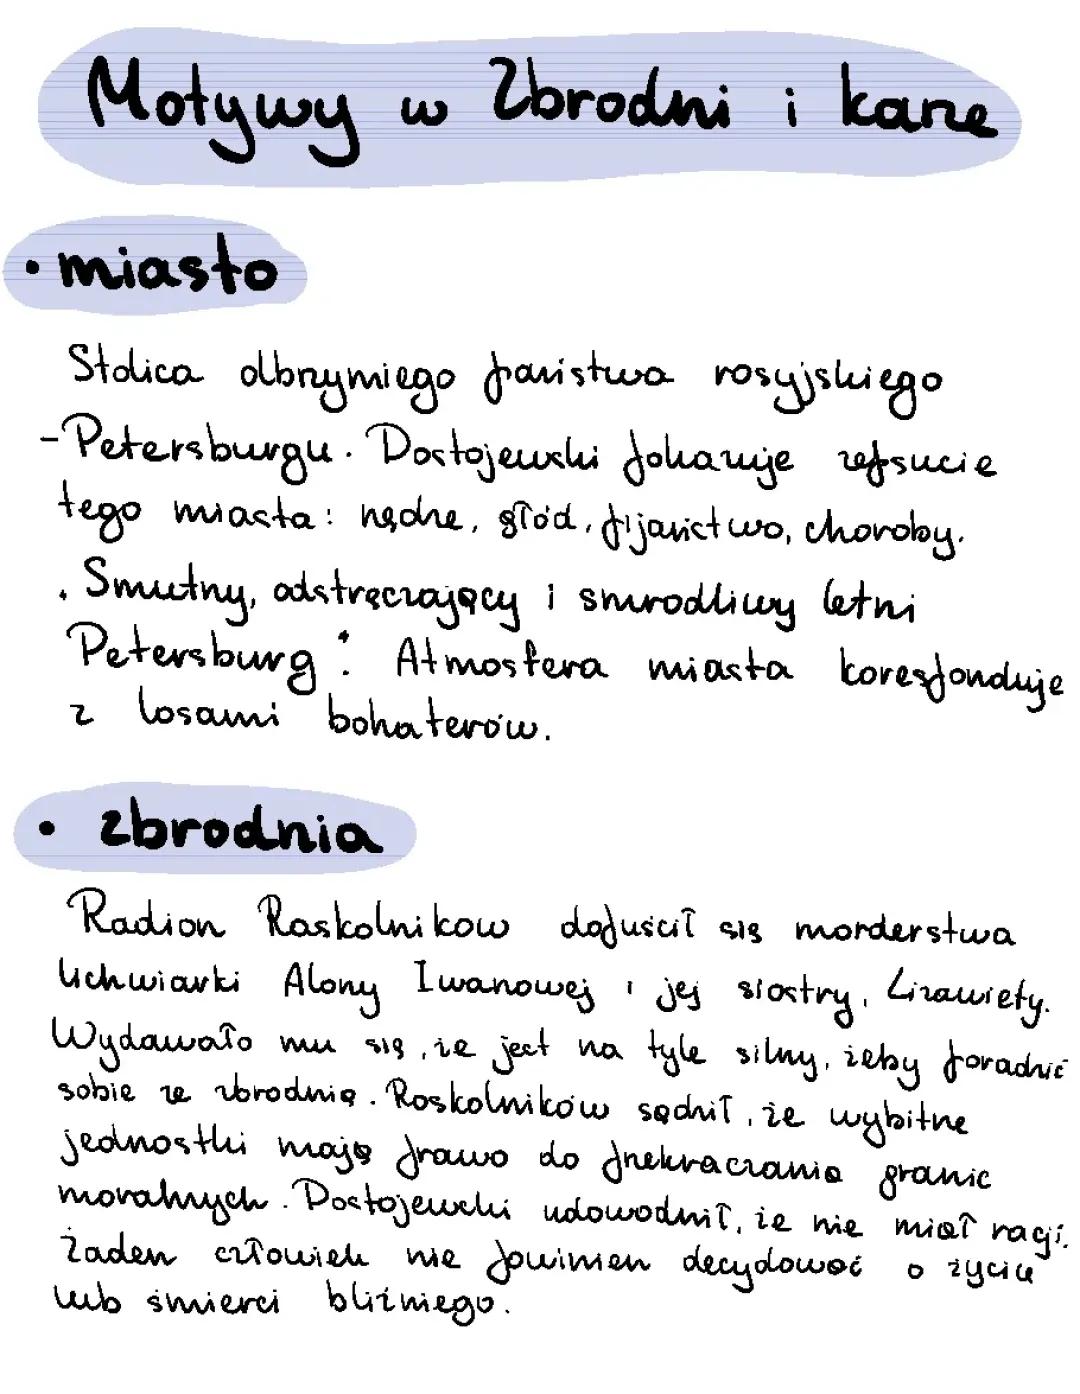 Motywy w Zbrodni i karze
• miasto
Stolica olbrzymiego państwa rosyjskiego
- Petersburgu. Dostojewski pokazuje zepsucie
tego miasta: nędzę, głód, pijaństwo, choroby.
. Smutny, odstręczający i smrodliwy letni
Petersburg": Atmosfera miasta koresponduje
z losami bohaterów.
• zbrodnia
Radion Raskolnikow dopuścił się morderstwa
lichwiarki Alony Iwanownej i jej siostry, Lizawiety.
Wydawało mu się, że jest na tyle silny, żeby poradzić
sobie ze zbrodnią. Roskolników sądził, że wybitne
jednostki mają prawo do przekraczania granic
moralnych. Dostojewski udowodnił, że nie miał racji.
Żaden człowiek nie powinien decydować o życiu
lub śmierci bliźniego.